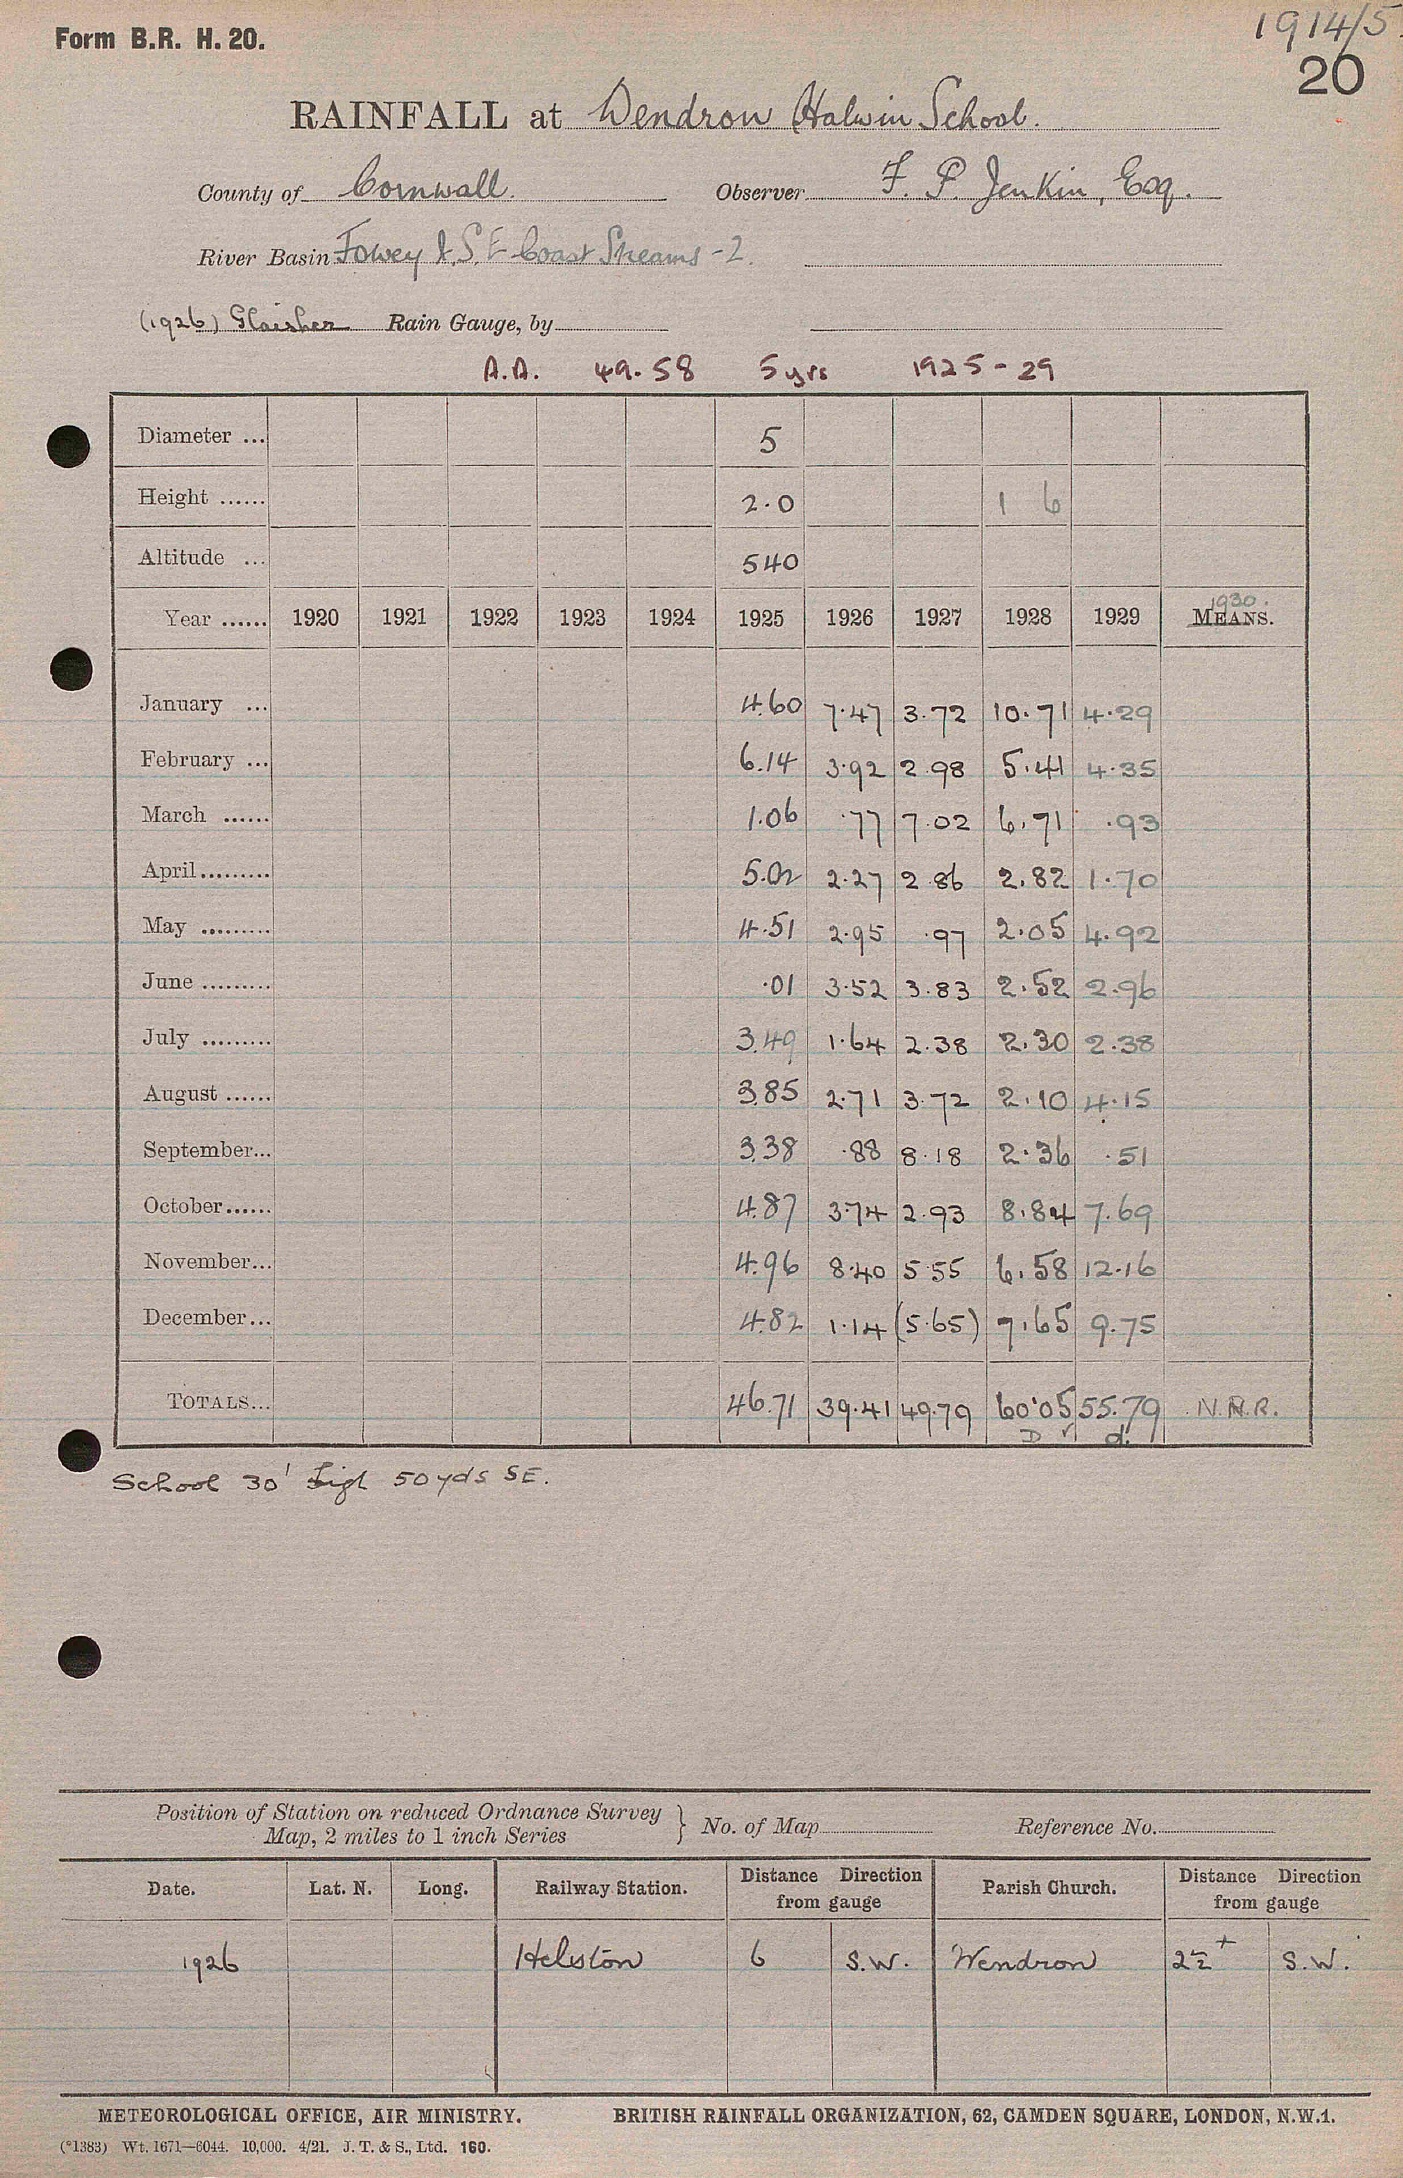 Form B.R. H. 20.
1914/5
20
RAINFALL at Wendron Halwin School.
County of Cornwall. Observer F. P. Jenkin, Esq.
River Basin Fowey & S.E Coast Streams - 2.
(1926) Glaisher Rain Gauge, by
A.A. 49.58 5 yrs 1925 - 29
Diameter ... 5
Height ...... 2.0 1 6
Altitude ... 540
1930.
Year ...... 1920 1921 1922 1923 1924 1925 1926 1927 1928 1929 MEANS.
January ... 4.60 7.47 3.72 10.71 4.29
February ... 6.14 3.92 2.98 5.41 4.35
March ...... 1.06 .77 7.02 6.71 .93
April......... 5.02 2.27 2.86 2.82 1.70
May ......... 4.51 2.95 .97 2.05 4.92
June ......... .01 3.52 3.83 2.52 2.96
July ......... 3.49 1.64 2.38 2.30 2.38
August ...... 3.85 2.71 3.72 2.10 4.15
September... 3.38 .88 8.18 2.36 .51
October...... 4.87 3.74 2.93 8.84 7.69
November... 4.96 8.40 5.55 6.58 12.16
December... 4.82 1.14 (5.65) 7.65 9.75
TOTALS... 46.71 39.41 49.79 60.05 55.79 N.R.R.
D r d.
School 30' high 50 yds SE.
Position of Station on reduced Ordnance Survey
Map, 2 miles to 1 inch Series } No. of Map Reference No.
Date. Lat. N. Long. Railway Station. Distance Direction from gauge Parish Church. Distance Direction from gauge
1926 Helston 6 S.W. Wendron 2½+ S.W.
METEOROLOGICAL OFFICE, AIR MINISTRY. BRITISH RAINFALL ORGANIZATION, 62, CAMDEN SQUARE, LONDON, N.W.1.
(*1383) Wt. 1671—6044. 10,000. 4/21. J. T. & S., Ltd. 160.